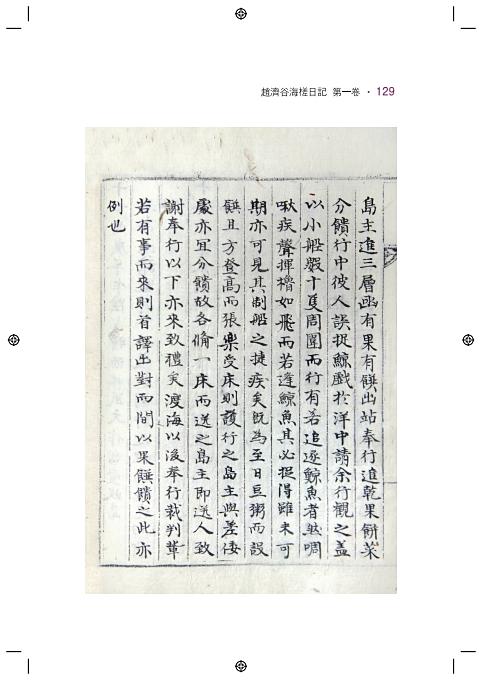 趙濟谷海槎日記 第一卷 · 129
島主進三層函有果有饌出站奉行進乾果餅菜
分饋行中彼人誤捉鯨戲於洋中請余行觀之盖
以小船數十隻周圍而行有若追逐鯨魚者然啁
啾疾聲揮櫓如飛而若逢鯨魚其必捉得雖未可
期亦可見其制船之捷疾矣旣為至日豆粥而設
饌且方登高而張樂受床則護行之島主與差倭
處亦宜分饋故各脩一床而送之島主卽送人致
謝奉行以下亦來致禮矣渡海以後奉行裁判輩
若有事而來則首譯出對而間以果饌饋之此亦
例也